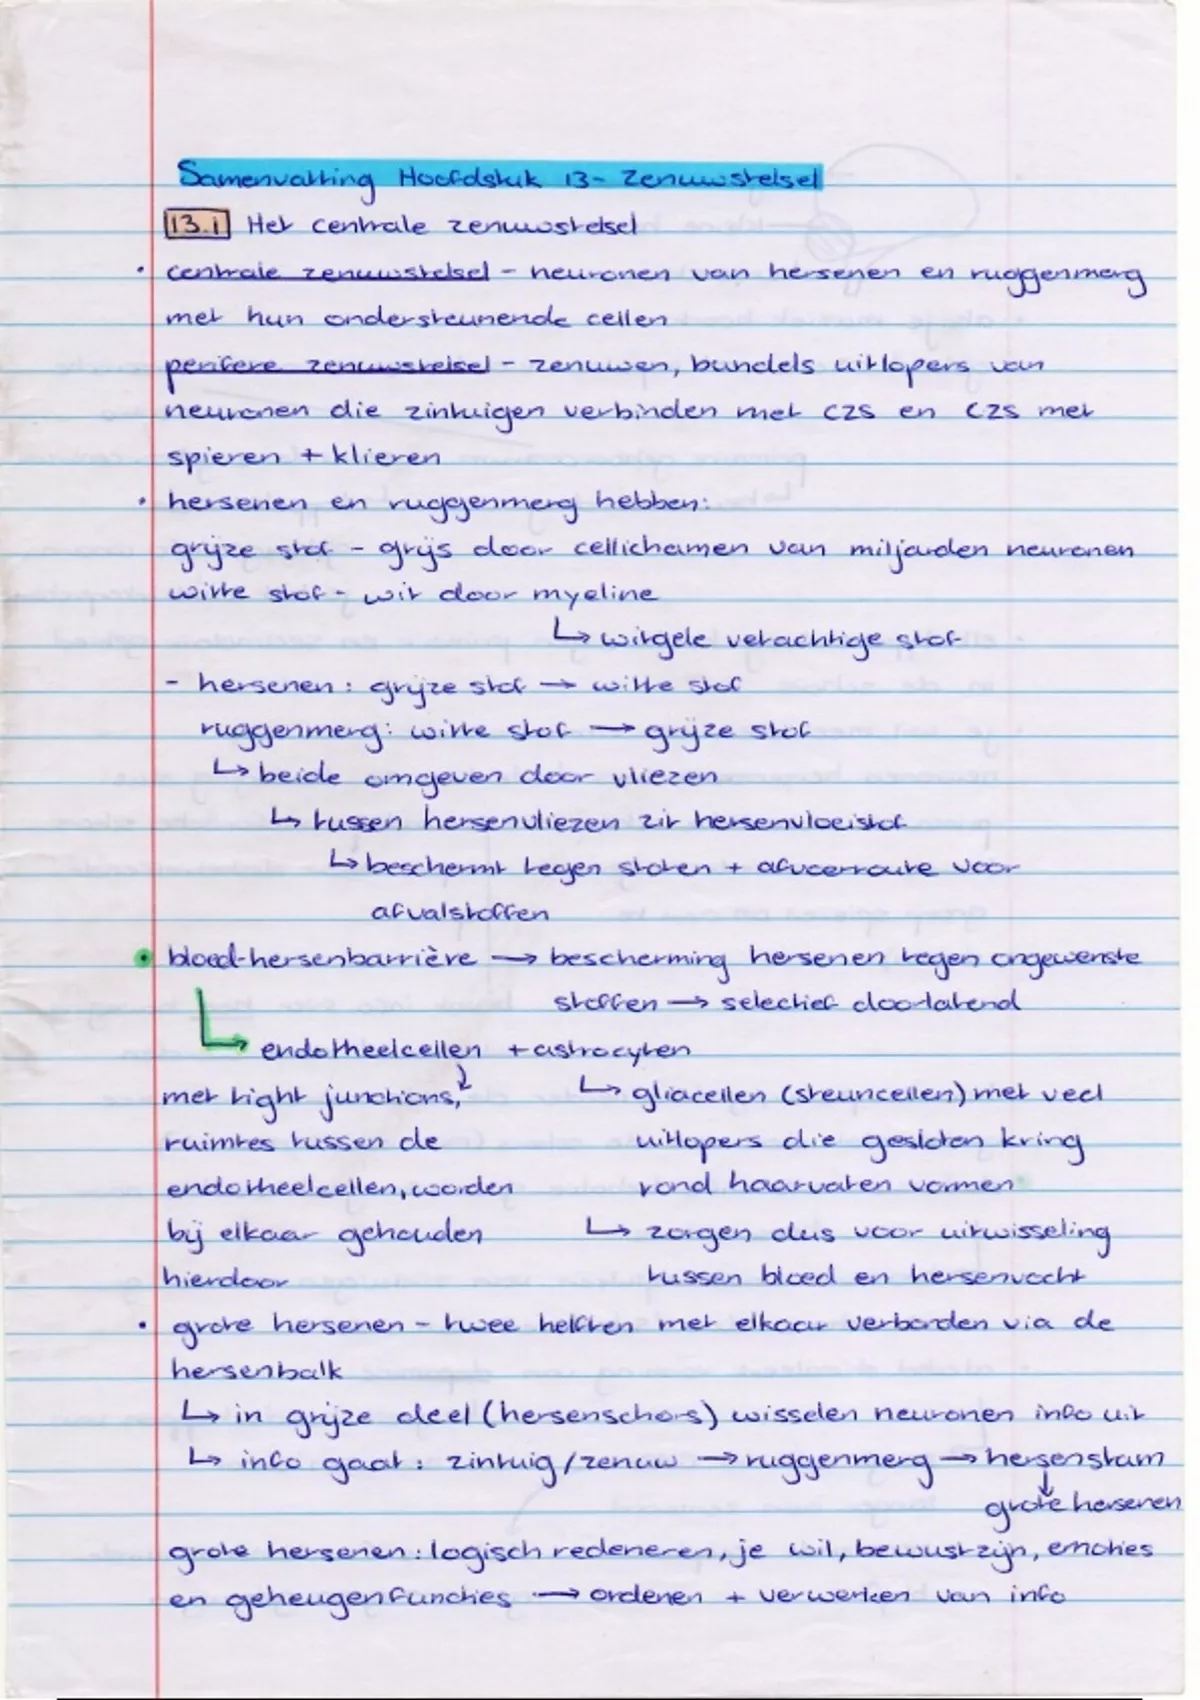 Samenvatting Hoofdstuk 13 - Zenuwstelsel
13.1 Het centrale zenuwstelsel
• centrale zenuwstelsel - neuronen van hersenen en ruggenmerg
met hun ondersteunende cellen
perifere zenuwstelsel - zenuwen, bundels uitlopers van
neuronen die zintuigen verbinden met CZS en CZS met
spieren + klieren
• hersenen en ruggenmerg hebben:
grijze stof - grijs door cellichamen van miljarden neuronen
witte stof - wit door myeline
↳ witgele vetachtige stof
- hersenen: grijze stof → witte stof
ruggenmerg: witte stof → grijze stof
↳ beide omgeven door vliezen
↳ tussen hersenvliezen zit hersenvloeistof
↳ beschermt tegen stoten + afvoerroute voor
afvalstoffen
• bloed-hersenbarrière → bescherming hersenen tegen ongewenste
stoffen → selectief doorlatend
↳ endotheelcellen + astrocyten
met tight junctions, ↓ ↳ gliacellen (steuncellen) met veel
ruimtes tussen de uitlopers die gesloten kring
endotheelcellen, worden rond haarvaten vormen
bij elkaar gehouden ↳ zorgen dus voor uitwisseling
hierdoor tussen bloed en hersenvocht
• grote hersenen - twee helften met elkaar verbonden via de
hersenbalk
↳ in grijze deel (hersenschors) wisselen neuronen info uit
↳ info gaat: zintuig/zenuw → ruggenmerg → hersenstam
↓
grote hersenen
grote hersenen: logisch redeneren, je wil, bewustzijn, emoties
en geheugenfuncties → ordenen + verwerken van info